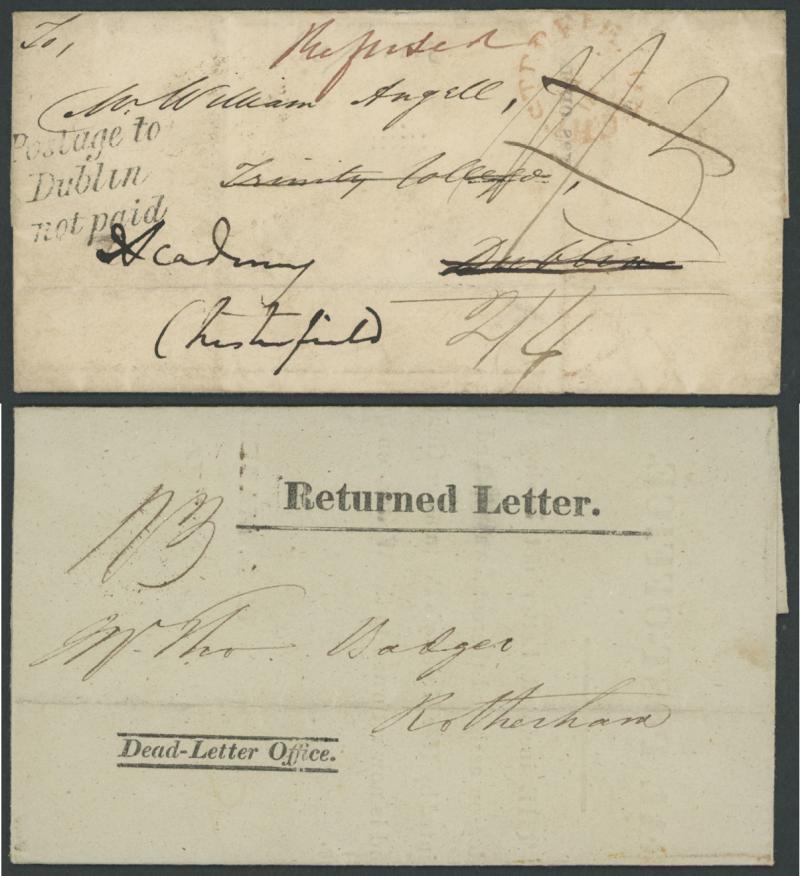 To,
Refused
Mr. William Angell,
Postage to
Dublin
not paid
Trinity College,
Dublin
Academy
Chesterfield
2/4
Returned Letter.
1/3
Mr. Tho Badger
Rotherham
Dead-Letter Office.